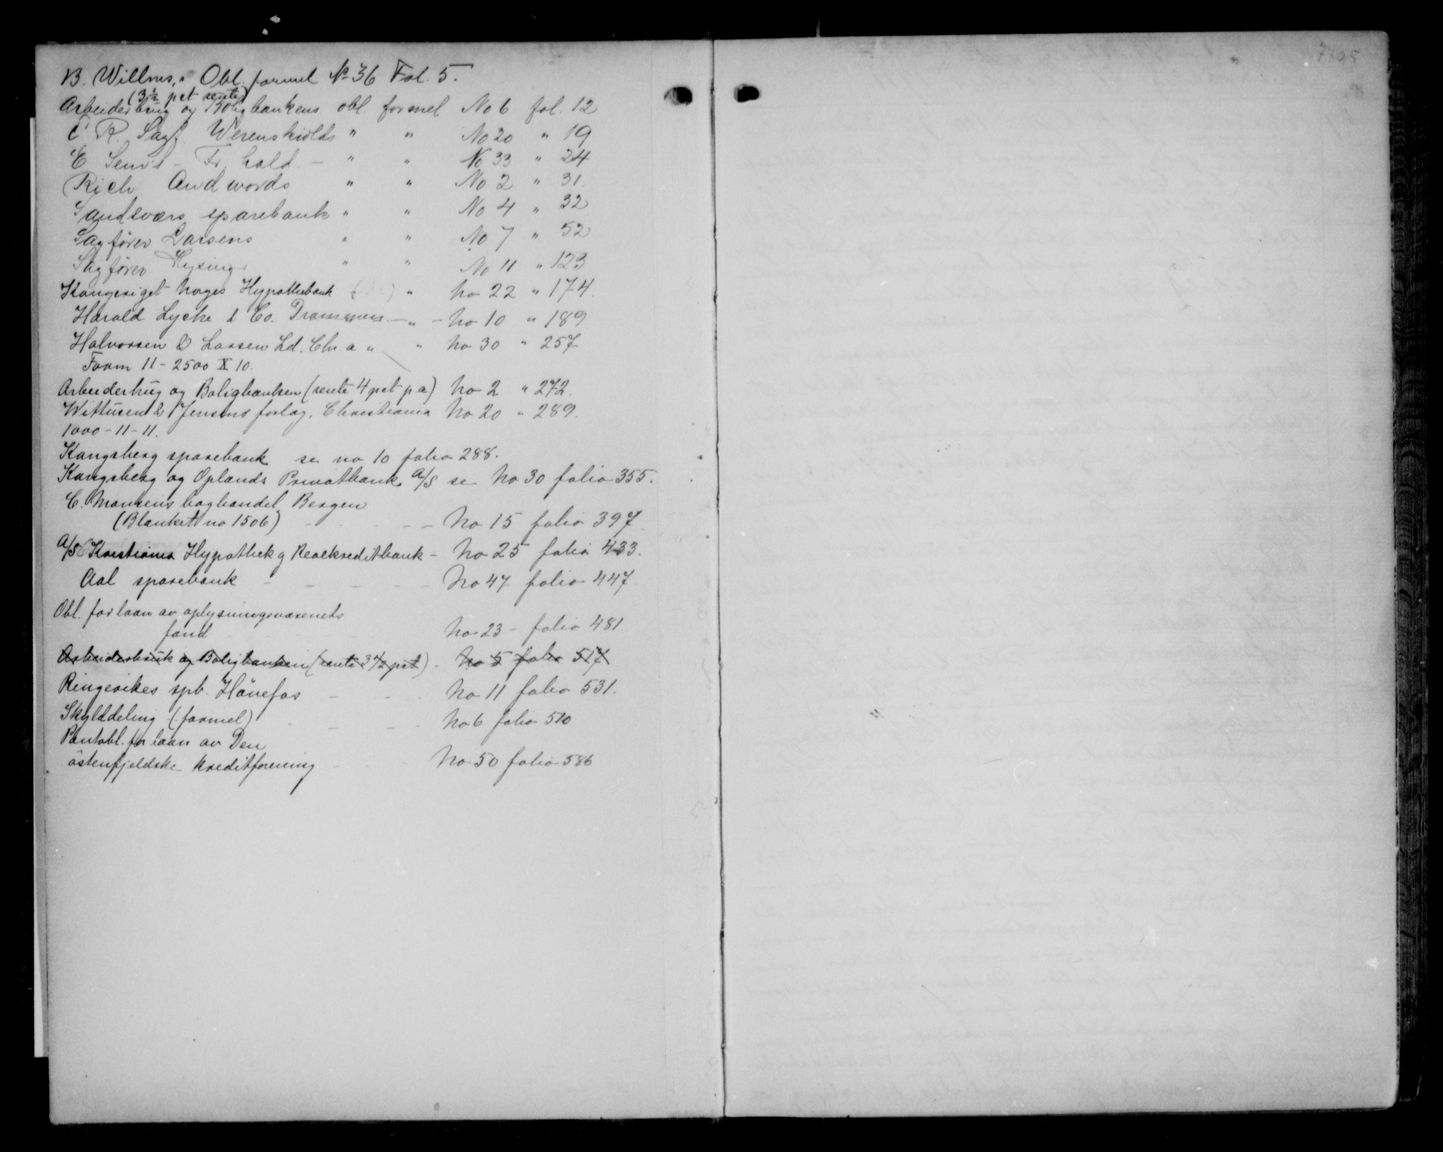 B. Willms, " Obl. formel No 36 Fol. 5.
(3½ pct rente)
Arbeiderbrug og Boligbankens obl. formel No 6 fol. 12
C R Sagf. Werenskiolds " " No 20 " 19
E Sem's - Fr. hald - " " No 33 " 24
Rich Andvords " " No 2 " 31
Sandsværs sparebank " " No 4 " 32
Sagfører Larsens " " No 7 " 52
Sagfører " " No 11 " 123
Kongeriget Norges Hypothekbank " No 22 " 174.
Harald Lyche & Co. Drammen - " - No 10 " 189
Halvorsen & Larsen Ld. Chr.a " " No 30 " 257
Form 11 - 2500 X 10.
Arbeiderbrug og Boligbanken (rente 4 pct p a) No 2 " 272.
Wittusen & Jensens forlag, Christiania No 20 " 289.
1000 - 11 - 11.
Kongsberg sparebank se no 10 folio 288.
Kongsberg og Oplands Privatbank A/S se No 30 folio 355.
C. Monsens boghandel Bergen
(Blankett no 1506) - - - No 15 folio 397
A/S Kristiania Hypothek g Realkreditbank - No 25 folio 433.
Aal sparebank - - - - No 47 folio 447
Obl. for laan av oplysningsvæsenets
fond No 23 - folio 481
Arbeiderbruk og Boligbanken (rente 3½ pct) - No 5 folio 517
Ringerikes spb. Hönefos - - - No 11 folio 531.
Skylddeling (formel) - - - No 6 folio 510
Pantobl. for laan av Den
östenfjeldske kreditforening - - - No 50 folio 586